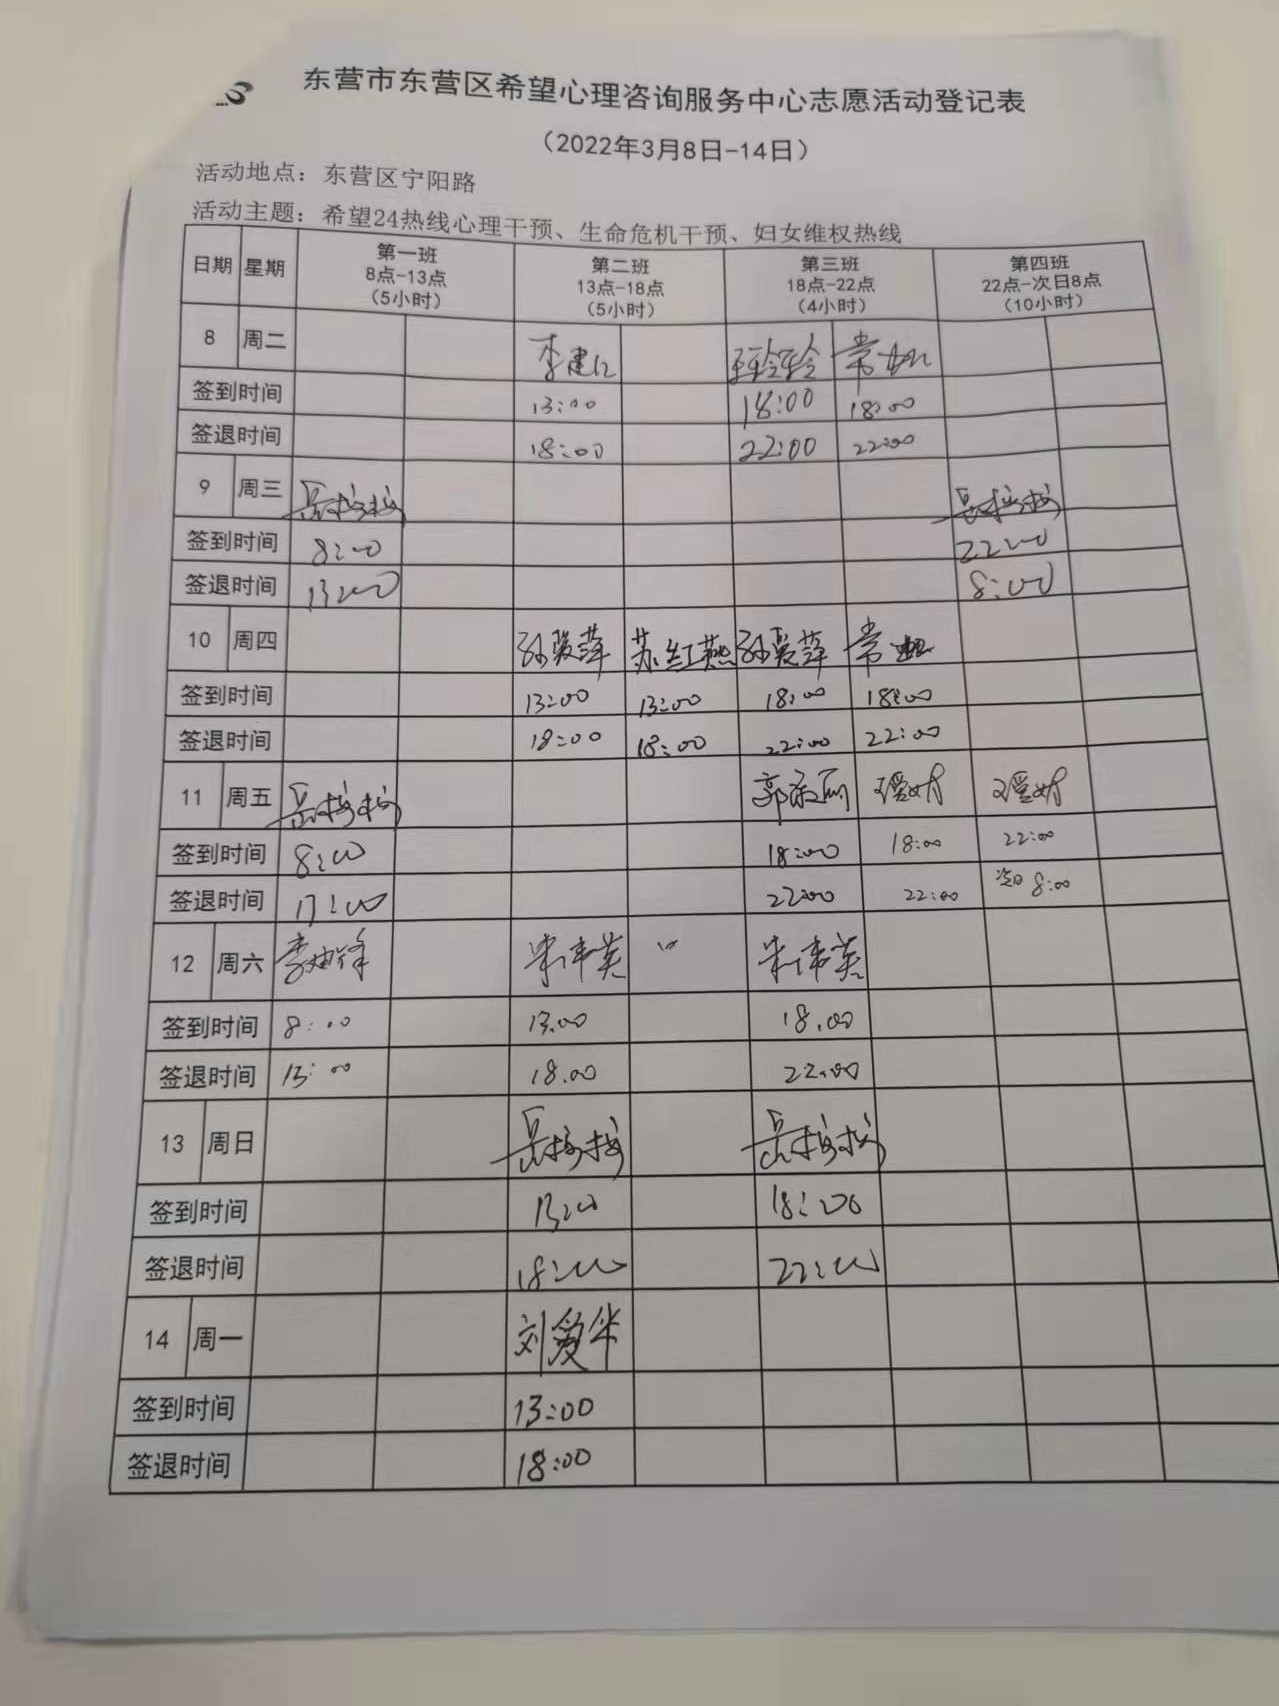 东营市东营区希望心理咨询服务中心志愿活动登记表
（2022年3月8日-14日）
活动地点：东营区宁阳路
活动主题：希望24热线心理干预、生命危机干预、妇女维权热线
日期 星期 第一班 第二班 第三班 第四班
8点-13点 13点-18点 18点-22点 22点-次日8点
（5小时） （5小时） （4小时） （10小时）
8 周二
签到时间 13:00 18:00 18:00
签退时间 18:00 22:00 22:00
9 周三
签到时间 8:00 22:00
签退时间 13:00 8:00
10 周四 孙爱萍 苏红燕 孙爱萍
签到时间 13:00 13:00 18:00 18:00
签退时间 18:00 18:00 22:00 22:00
11 周五
签到时间 8:00 18:00 18:00 22:00
签退时间 22:00 22:00 次日 8:00
12 周六 朱伟英 朱伟英
签到时间 8:00 13.00 18.00
签退时间 13:00 18.00 22.00
13 周日
签到时间 13:00 18:00
签退时间 18:00 22:00
14 周一 刘爱华
签到时间 13:00
签退时间 18:00